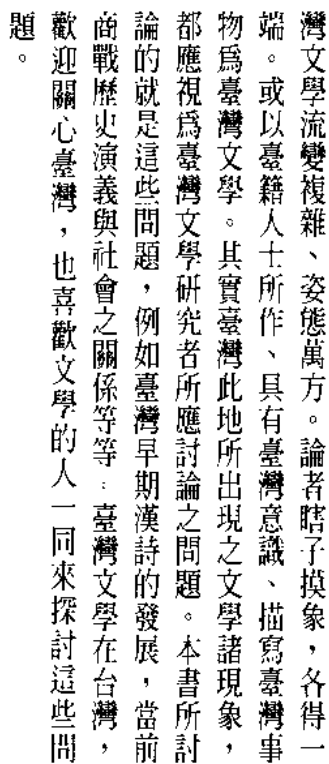 灣文學流變複雜、姿態萬方。論者瞎子摸象，各得一
端。或以臺籍人士所作、具有臺灣意識、描寫臺灣事
物爲臺灣文學。其實臺灣此地所出現之文學諸現象，
都應視爲臺灣文學研究者所應討論之問題。本書所討
論的就是這些問題，例如臺灣早期漢詩的發展，當前
商戰歷史演義與社會之關係等等：臺灣文學在台灣，
歡迎關心臺灣，也喜歡文學的人一同來探討這些問
題。